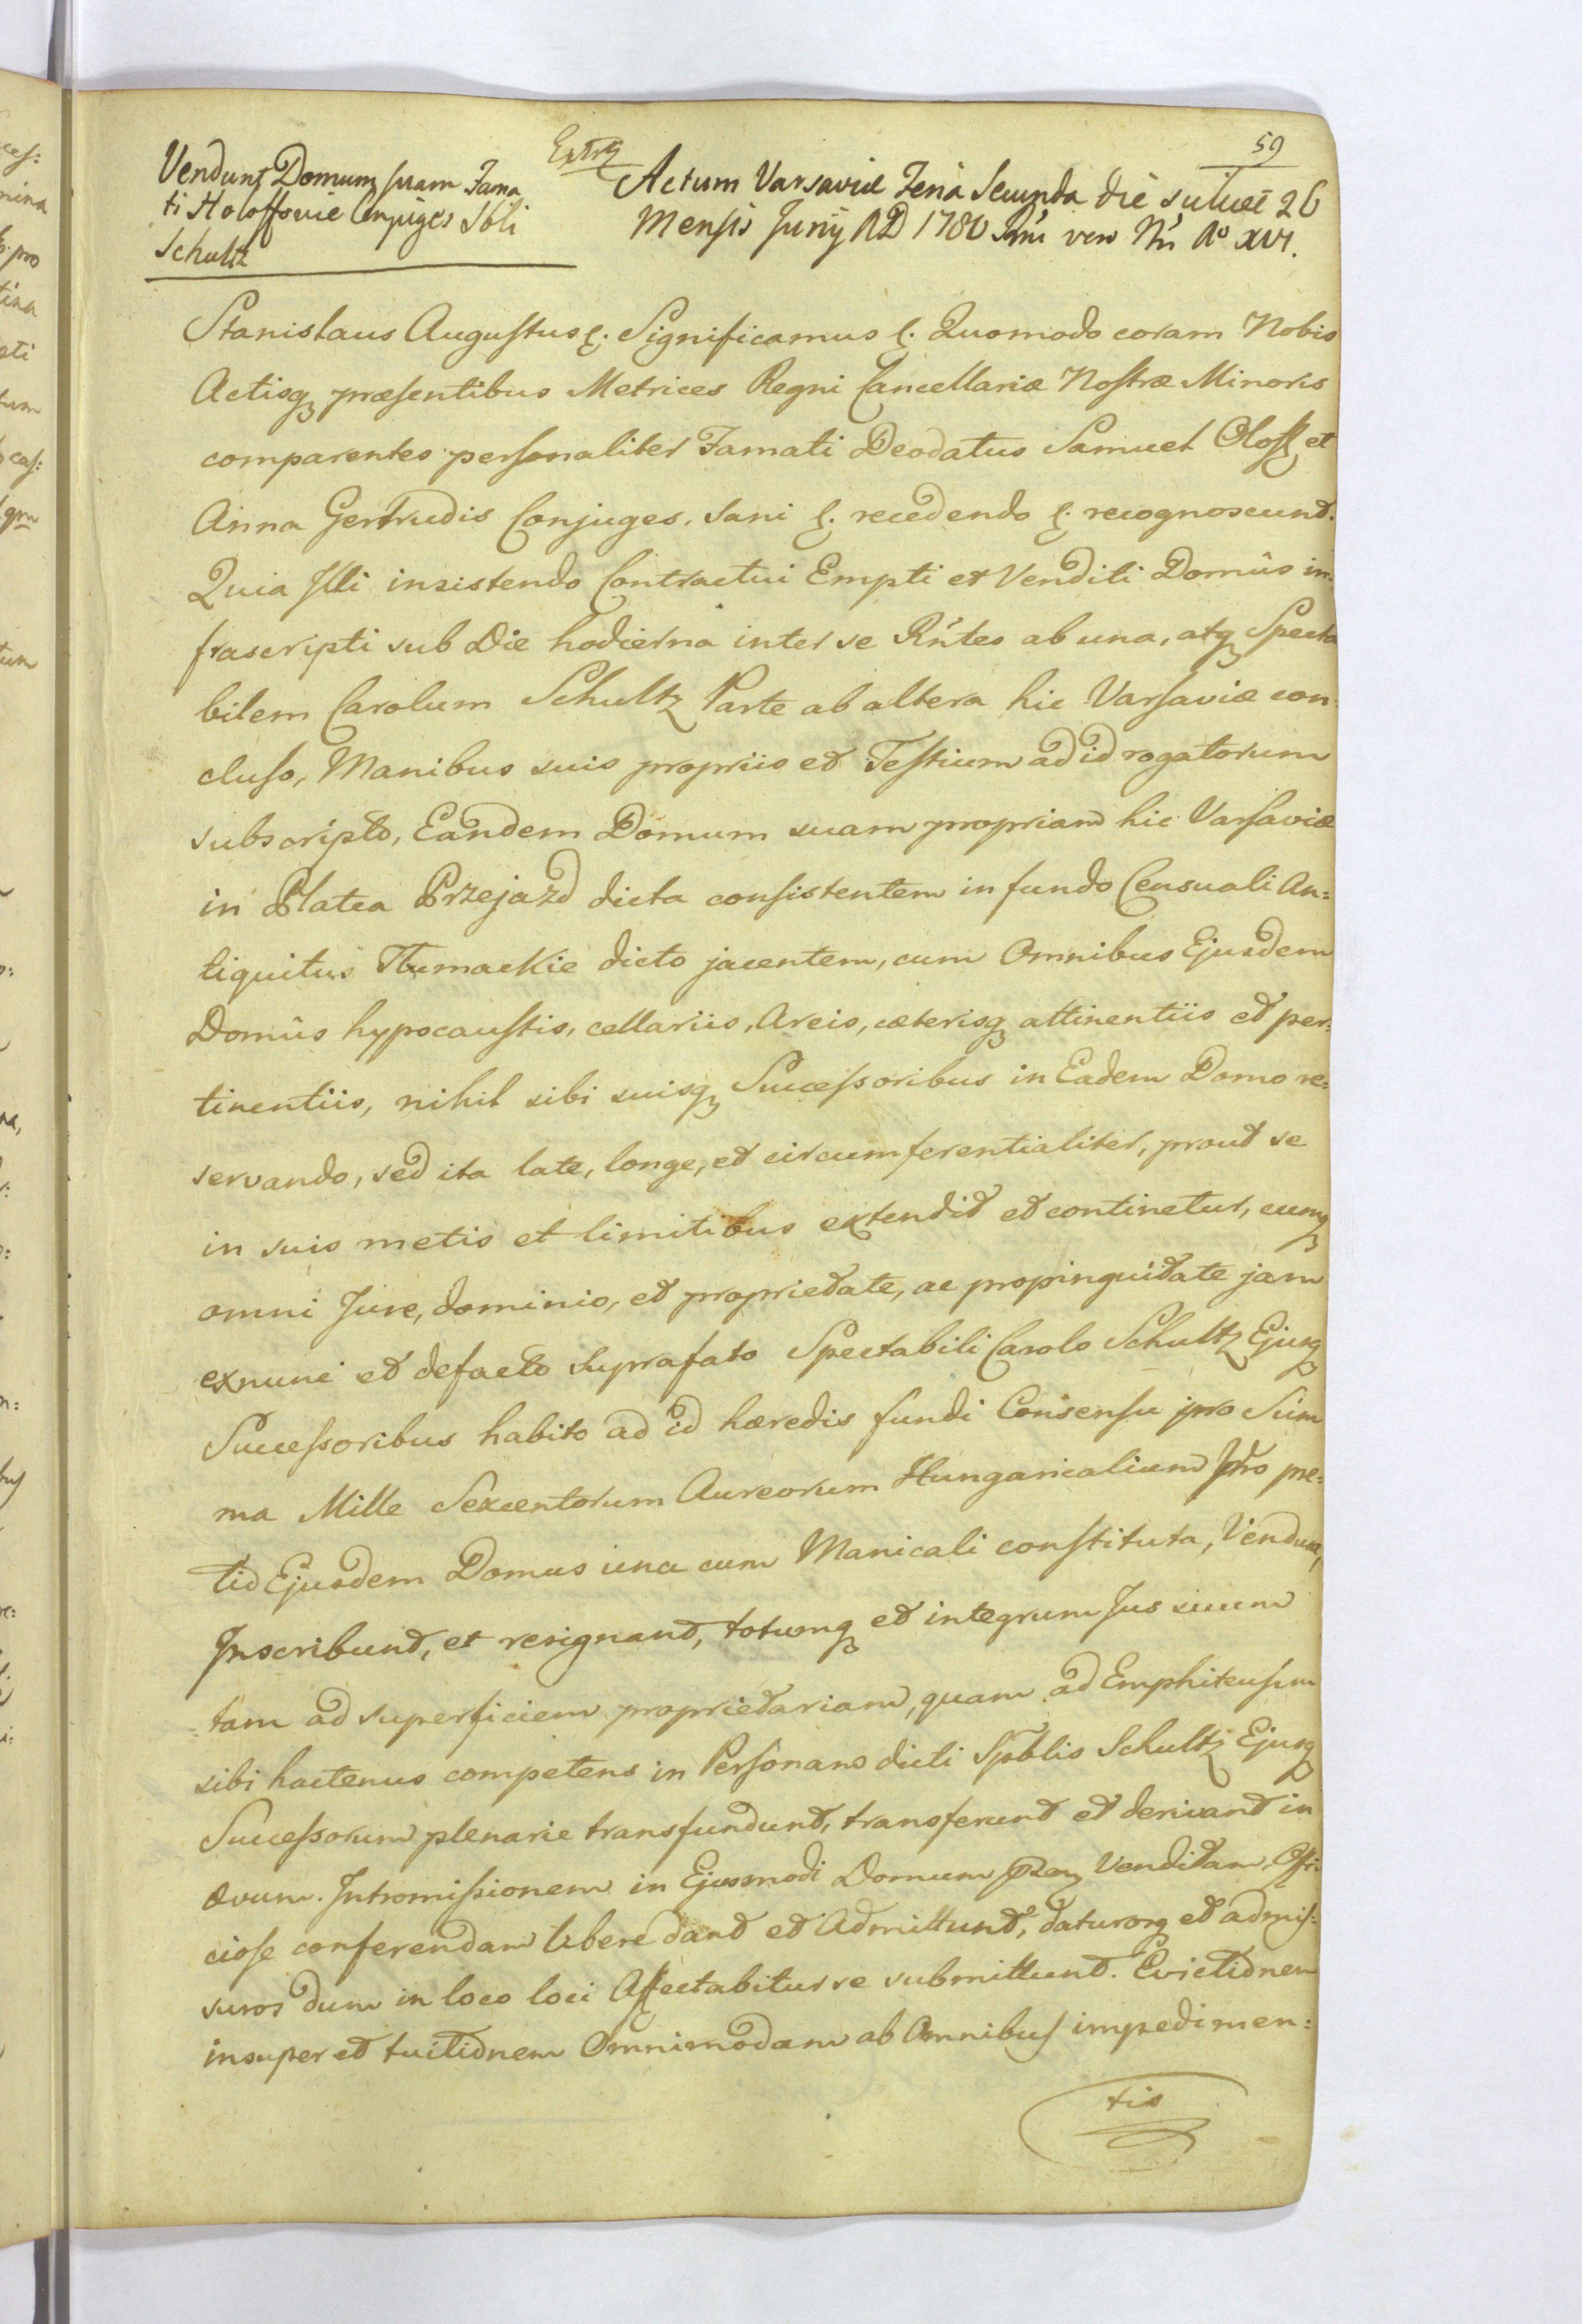 59
Extr
Vendunt Domum suam Fama
ti Holoffowie Conjuges Sbli
Schultz
Actum Varsaviæ Feria Secunda die scilicet 26
Mensis Junij AD 1780 Rni vero Nri Aº XVI.
Stanislaus Augustus &. Significamus &. Quomodo coram Nobis
Actisq præsentibus Metrices Regni Cancellariæ Nostræ Minoris
comparentes personaliter Famati Deodatus Samuel Oloff et
Anna Gertrudis Conjuges, sani &. recedendo &. recognoscunt.
Quia Illi insistendo Contractui Empti et Venditi Domûs in-
frascripti sub Die hodierna inter se Rntes ab una, atq Specta
bilem Carolum Schultz Parte ab altera hic Varsaviæ con-
cluso, Manibus suis propriis et Testium ad id rogatorum
subscripto, Eandem Domum suam propriam hic Varsaviæ
in Platea Przejazd dicta consistentem in fundo Censuali An=
tiquitus Tłumackie dicto jacentem, cum Omnibus Ejusdem
Domûs hypocaustis, cellariis, Areis, cæterisq attinentiis et per=
tinentiis, nihil sibi suisq Successoribus in Eadem Domo re=
servando, sed ita late, longe, et circumferentialiter, prout se
in suis metis et limitibus extendit et continetur, cumq
omni Jure, dominio, et proprietate, ac propinquitate jam
exnunc et defacto suprafato Spectabili Carolo Schultz Ejusq
Successoribus habito ad id hæredis fundi Consensu pro Sum
ma Mille Sexcentorum Aureorum Hungaricalium pro pre=
tio Ejusdem Domus una cum Manicali constituta, Vendunt,
Inscribunt, et resignant, totumq et integrum Jus suum
tam ad superficiem proprietariam, quam ad Emphiteusim
sibi hactenus competens in Personam dicti Spblis Schultz Ejusq
Successorum plenarie transfundunt, transferunt et derivant in
ævum. Intromissionem in Ejusmodi Domum Venditam Offi-
ciose conferendam libere dant et Admittunt, daturosq et admis=
suros dum in loco loci Affectabitur se submittunt. Evictionem
insuper et tuitionem Omnimodam ab Omnibus impedimen=
tis